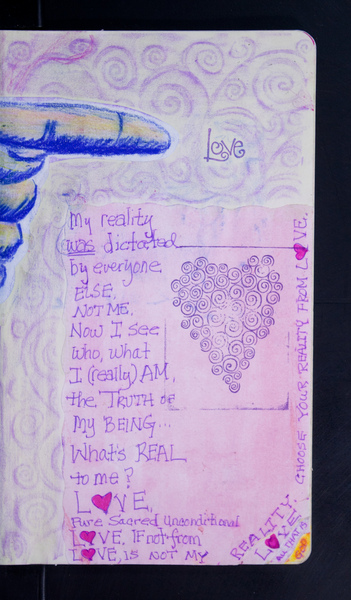 Love
My reality
was dictated
by everyone
ELSE,
NOT ME.
Now I see
who, what
I (really) AM,
the TRUTH OF
MY BEING...
What's REAL
to me?
LOVE.
Pure Sacred Unconditional
LOVE. IF not from
LOVE, IS NOT MY
REALITY.
LOVE
ALL THAT IS.
GOD
CHOOSE YOUR REALITY FROM LOVE.